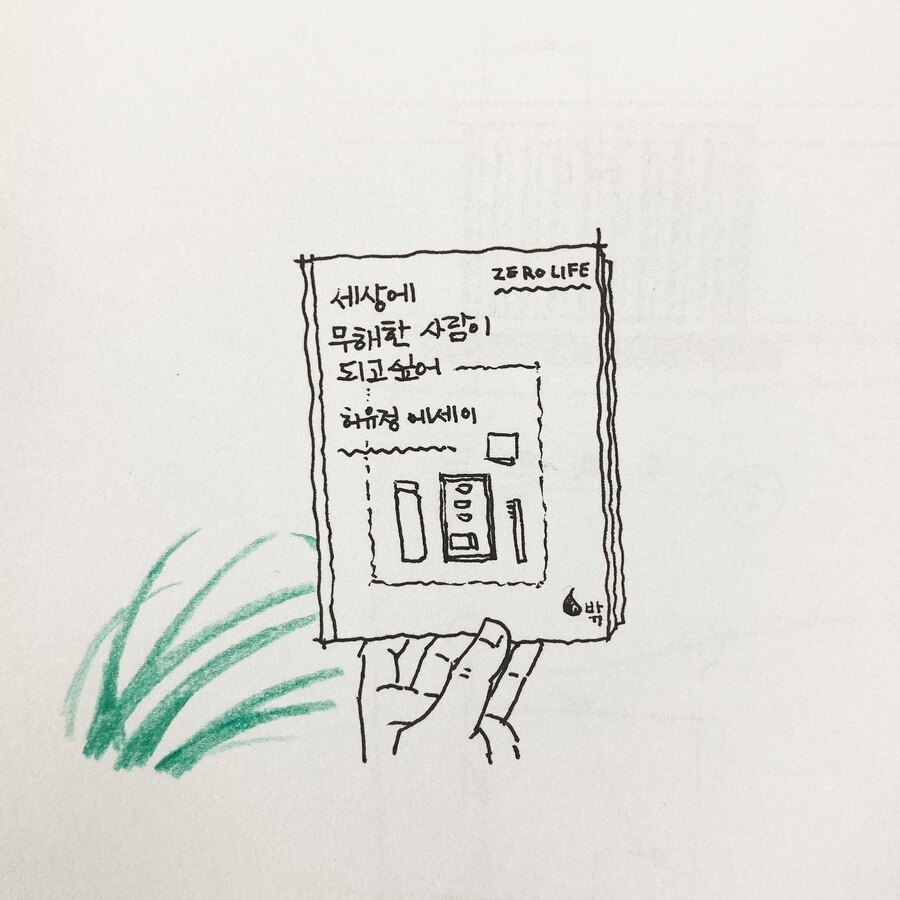 ZERO LIFE
세상에
무해한 사람이
되고싶어
허유정 에세이
밖